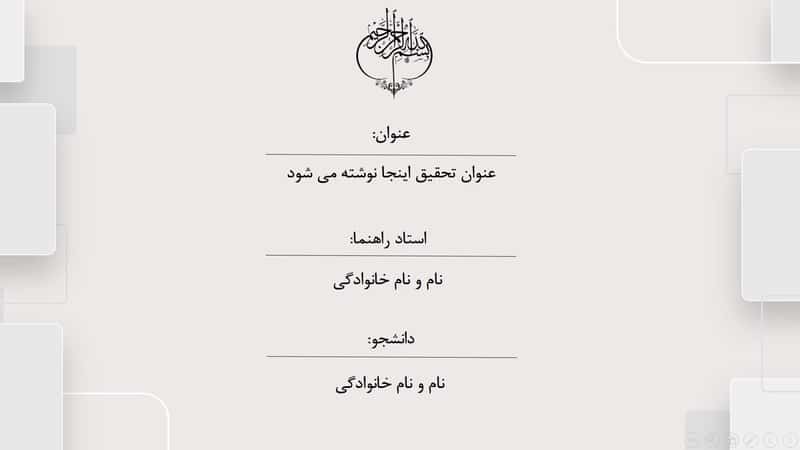 بسم الله الرحمن الرحیم
عنوان:
عنوان تحقیق اینجا نوشته می شود
استاد راهنما:
نام و نام خانوادگی
دانشجو:
نام و نام خانوادگی